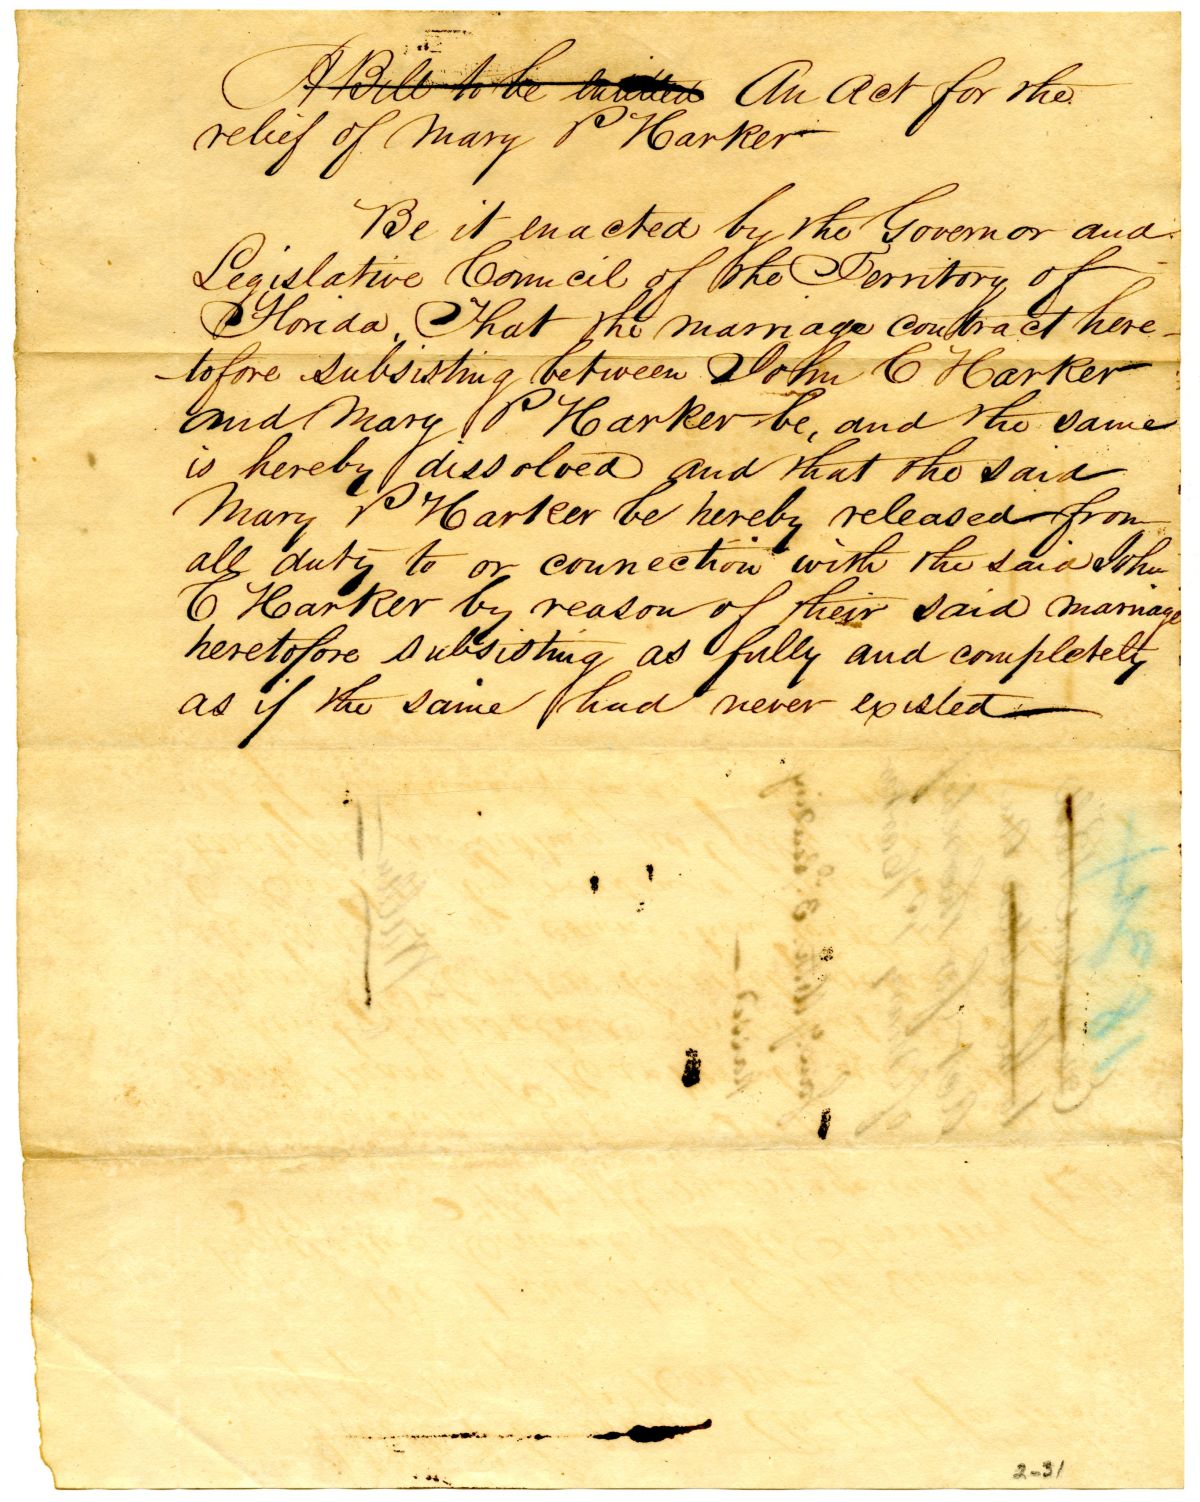 A Bill to be entitled An Act for the
relief of Mary P Harker
Be it enacted by the Governor and
Legislative Council of the Territory of
Florida, That the marriage contract here-
-tofore subsisting between John C Harker
and Mary P Harker be, and the same
is hereby dissolved and that the said
Mary P Harker be hereby released from
all duty to or connection with the said John
C Harker by reason of their said marriage
heretofore subsisting as fully and completely
as if the same had never existed
2-31